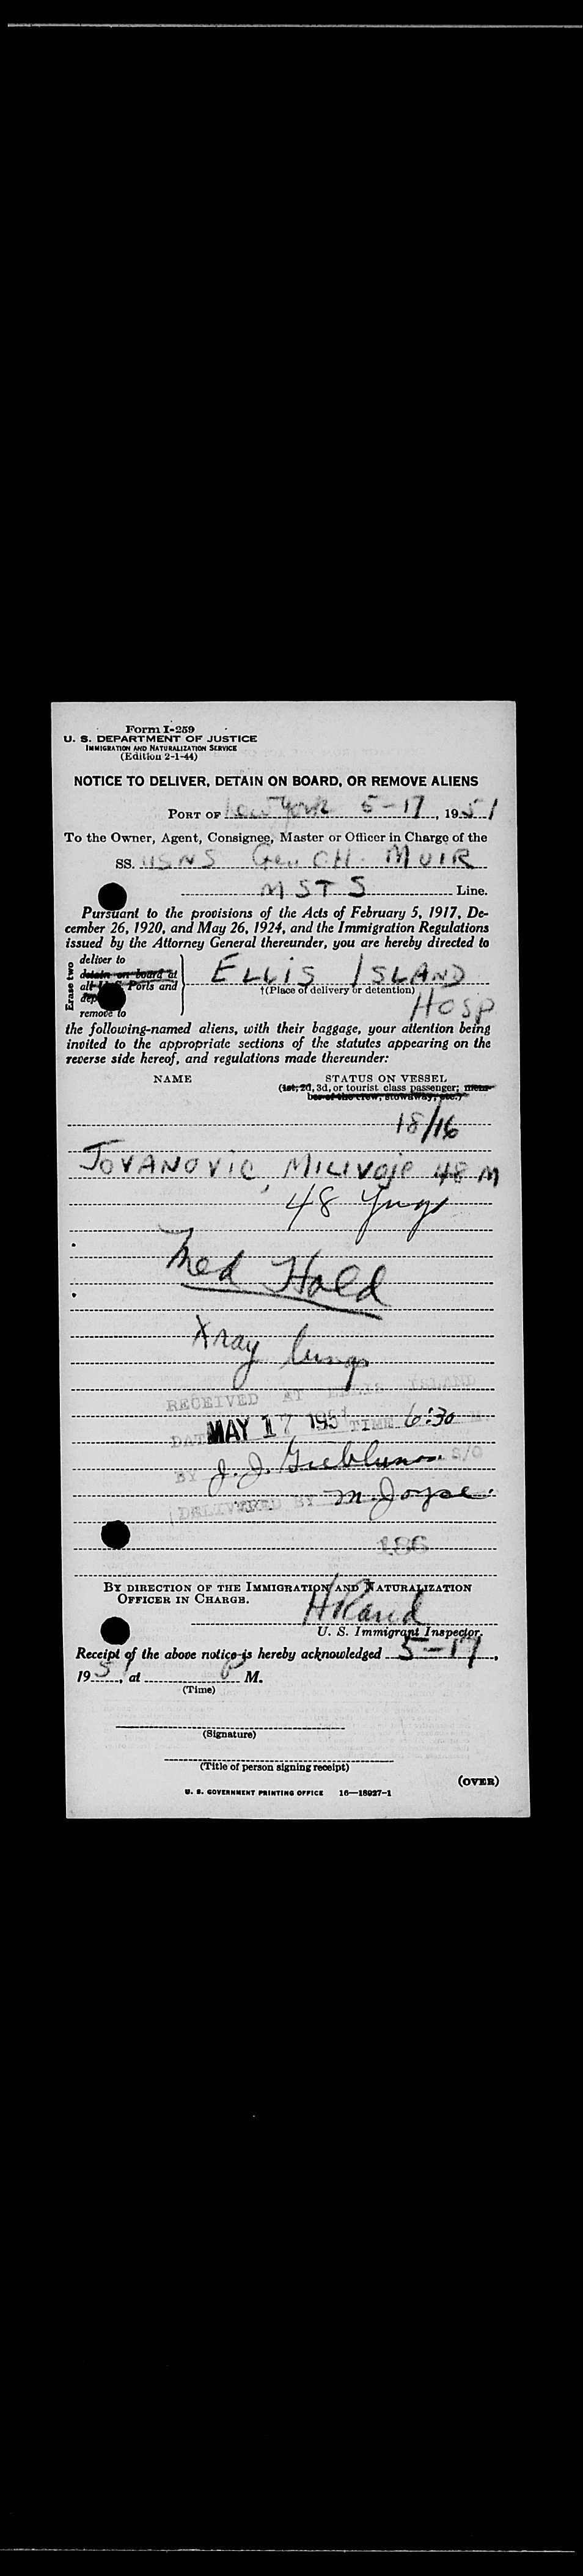 Form I-259
U. S. DEPARTMENT OF JUSTICE
IMMIGRATION AND NATURALIZATION SERVICE
(Edition 2-1-44)
NOTICE TO DELIVER, DETAIN ON BOARD, OR REMOVE ALIENS
PORT OF New York 5-17, 1951
To the Owner, Agent, Consignee, Master or Officer in Charge of the
SS. USNS Gen. CH. MUIR
MSTS Line.
Pursuant to the provisions of the Acts of February 5, 1917, De-
cember 26, 1920, and May 26, 1924, and the Immigration Regulations
issued by the Attorney General thereunder, you are hereby directed to
Erase two
deliver to
detain on board at
all U.S. Ports and
remove to
ELLIS ISLAND
†(Place of delivery or detention)
HOSP
the following-named aliens, with their baggage, your attention being
invited to the appropriate sections of the statutes appearing on the
reverse side hereof, and regulations made thereunder:
NAME STATUS ON VESSEL
(1st, 2d, 3d, or tourist class passenger; mem-
ber of the crew, stowaway, etc.)
18/16
JOVANOVIC, MILIVOJE 48 M
48 Yugo
Med Hold
Xray lungs
RECEIVED AT ELLIS ISLAND
DATE MAY 17 1951 TIME 6:30 M
BY J. J. S/O
DELIVERED BY M. Joyce
186
BY DIRECTION OF THE IMMIGRATION AND NATURALIZATION
OFFICER IN CHARGE.
H Rand
U. S. Immigrant Inspector.
Receipt of the above notice is hereby acknowledged 5-17,
1951, at P M.
(Time)
(Signature)
(Title of person signing receipt)
(OVER)
U. S. GOVERNMENT PRINTING OFFICE 16—18927-1